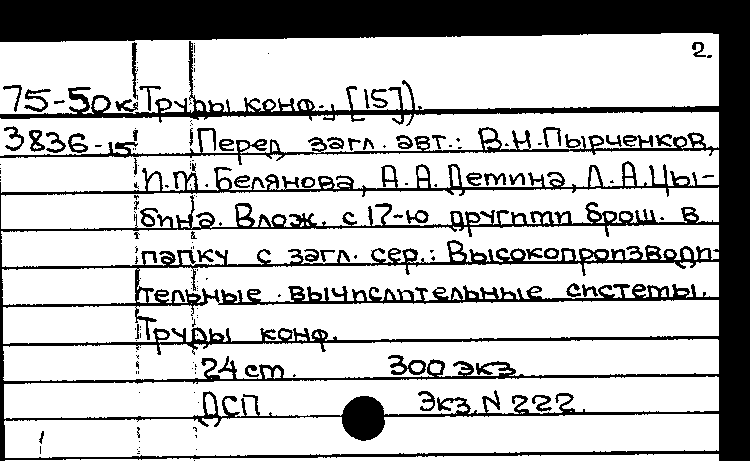 2.
75-50к Труды конф., [15]).
3836-15 Перед загл. авт.: В.Н.Пырченков,
И.М.Белянова, А.А.Демина, Л.А.Цы-
бина. Влож. с 17-ю другими брош. в
папку с загл. сер.: Высокопроизводи-
тельные вычислительные системы.
Труды конф.
24 ст. 300 экз.
ДСП. Экз. N 222.